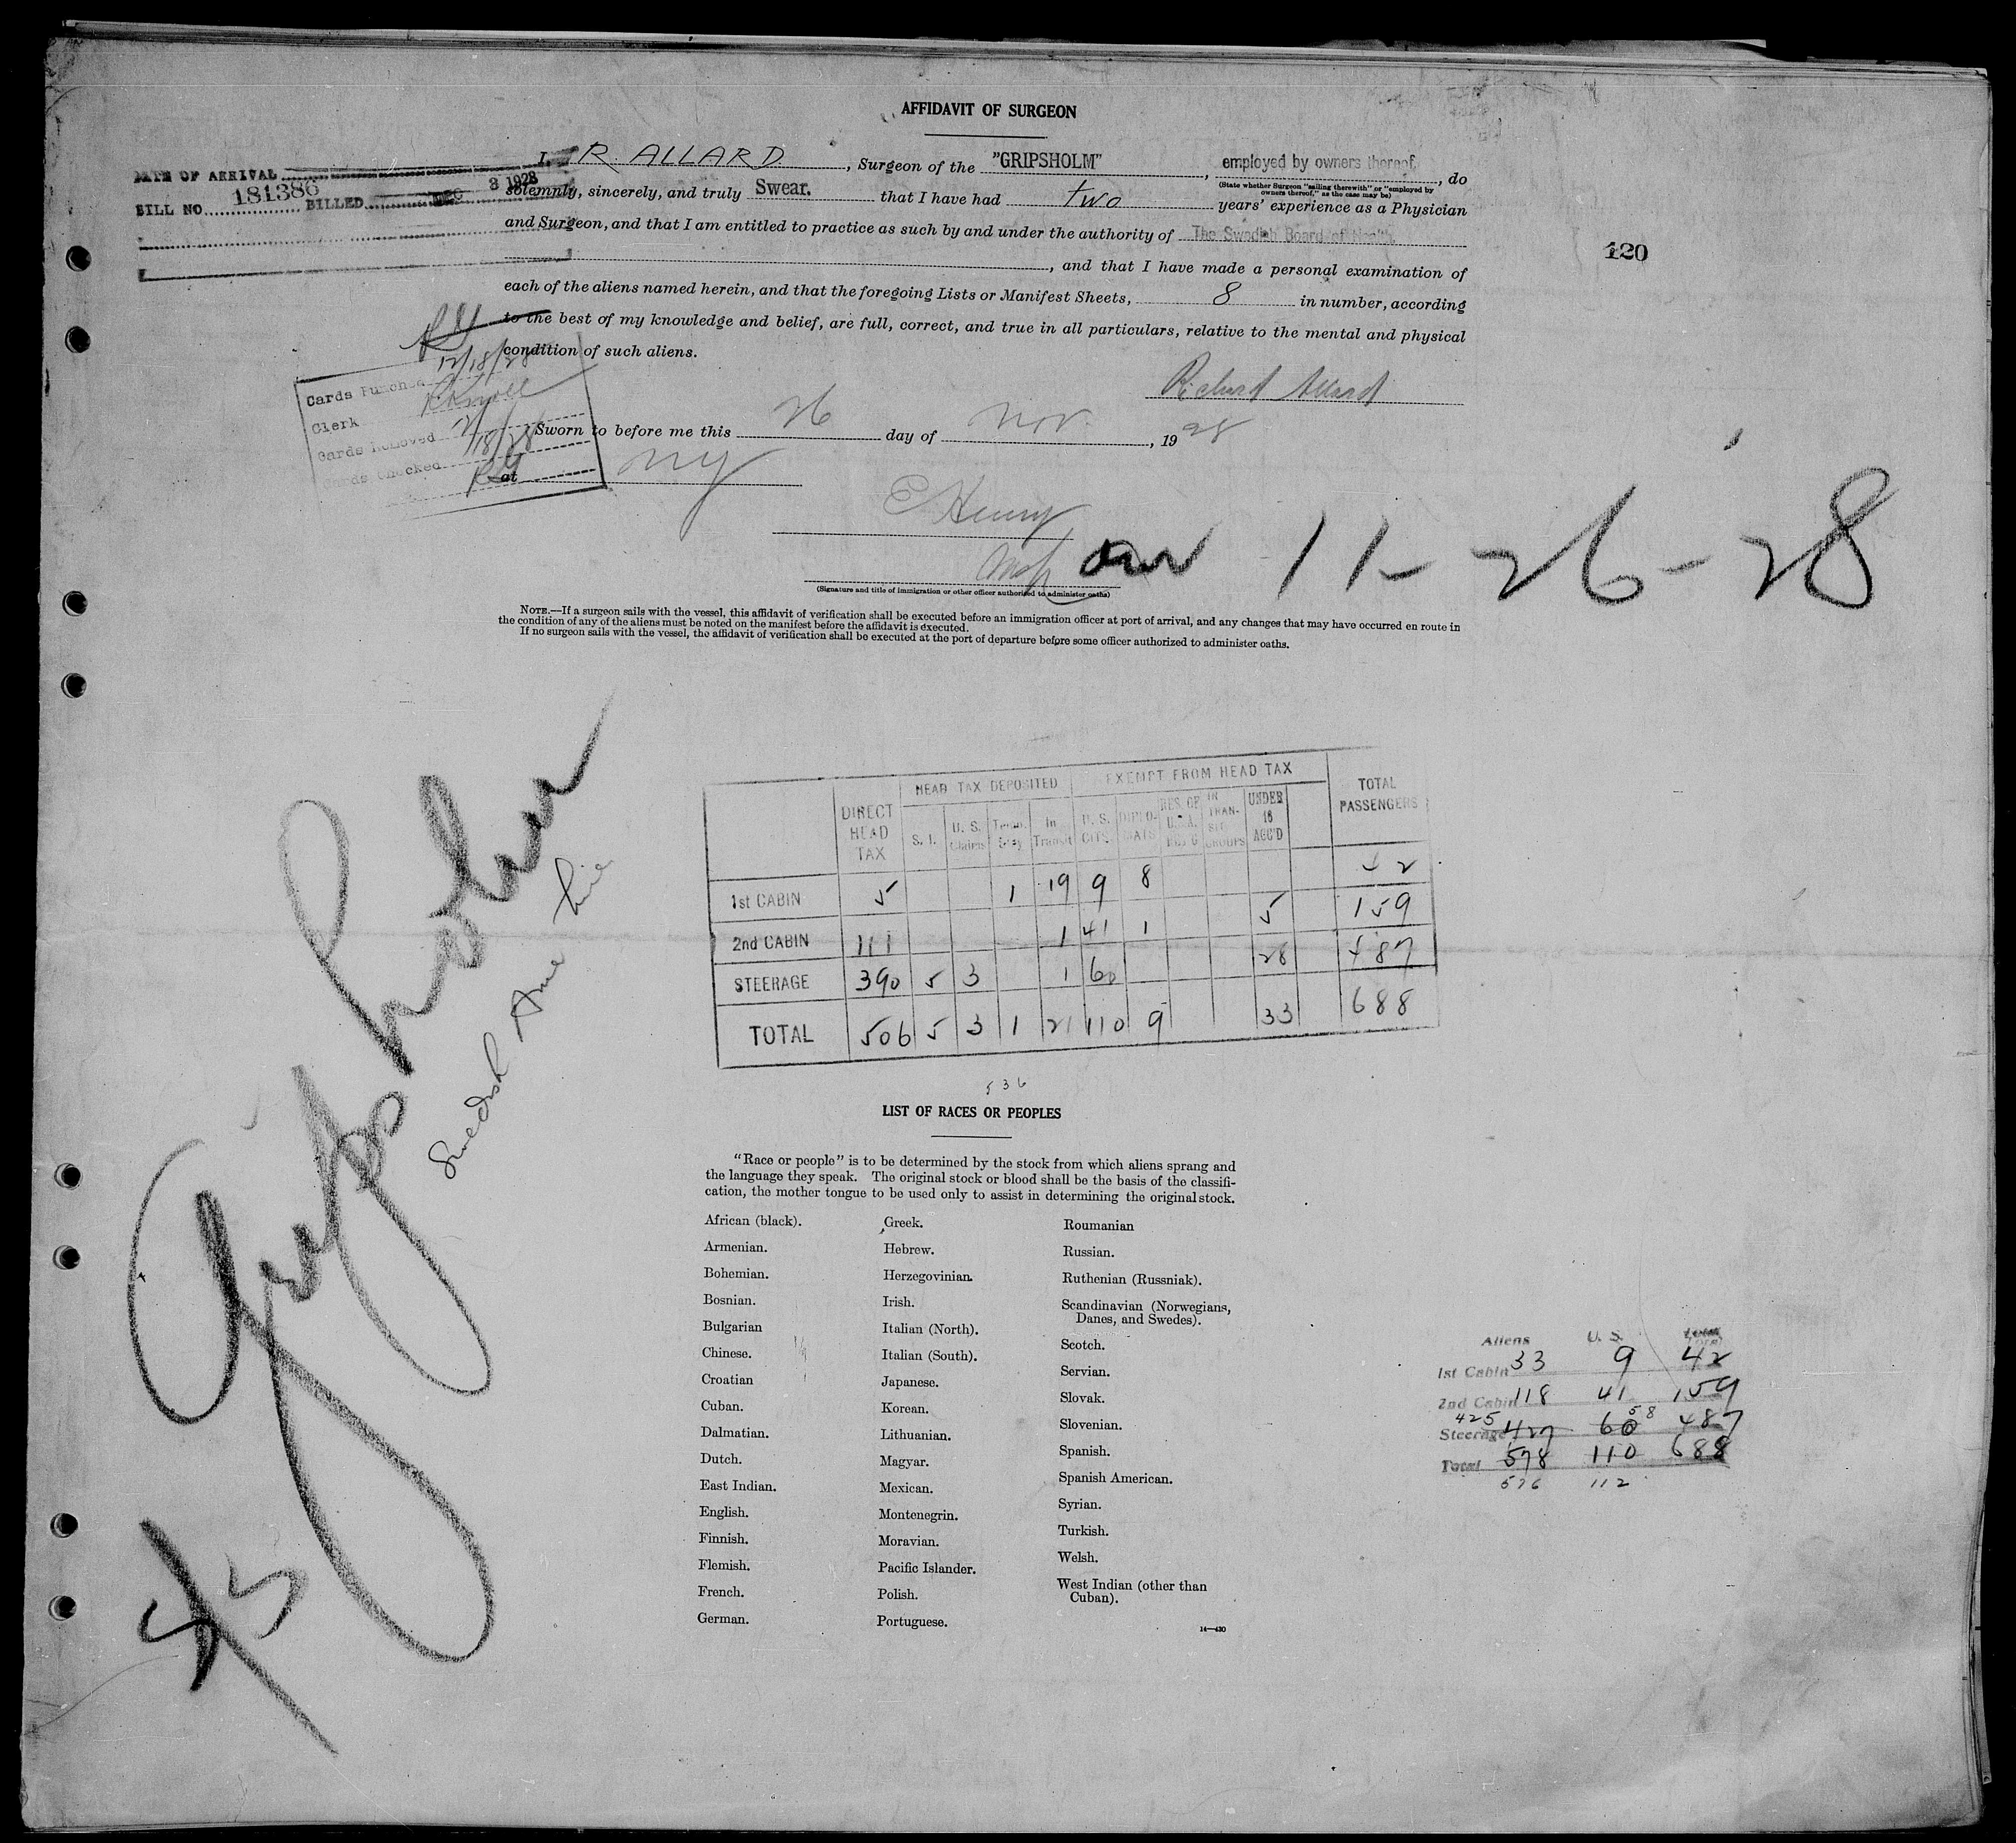 AFFIDAVIT OF SURGEON
DATE OF ARRIVAL
BILL NO. 181386 BILLED DEC 3 1928
120
I, R ALLARD, Surgeon of the "GRIPSHOLM", employed by owners thereof., do
(State whether Surgeon "sailing therewith" or "employed by owners thereof," as the case may be)
solemnly, sincerely, and truly Swear. that I have had two years' experience as a Physician
and Surgeon, and that I am entitled to practice as such by and under the authority of The Swedish Board of Health.
, and that I have made a personal examination of
each of the aliens named herein, and that the foregoing Lists or Manifest Sheets, 8 in number, according
to the best of my knowledge and belief, are full, correct, and true in all particulars, relative to the mental and physical
condition of such aliens.
Richard Allard
Cards Punched 12/18/28
Clerk
Cards Removed 12/18/28
Cards Checked
Sworn to before me this 26 day of Nov., 1928
at NY
E Henry
Insp
arr 11-26-28
(Signature and title of immigration or other officer authorized to administer oaths)
NOTE.—If a surgeon sails with the vessel, this affidavit of verification shall be executed before an immigration officer at port of arrival, and any changes that may have occurred en route in
the condition of any of the aliens must be noted on the manifest before the affidavit is executed.
If no surgeon sails with the vessel, the affidavit of verification shall be executed at the port of departure before some officer authorized to administer oaths.
S/S Gripsholm
Swedish Ame Line
DIRECT HEAD TAX
HEAD TAX DEPOSITED
EXEMPT FROM HEAD TAX
TOTAL PASSENGERS
S. I. U. S. Claims Temp. Stay In Transit U. S. CITS. DIPLO-MATS RES. OF U.S.A. IN TRAN-SIT GROUPS UNDER 16 ACC'D
1st CABIN 5 1 19 9 8 42
2nd CABIN 111 1 41 1 5 159
STEERAGE 390 5 3 1 60 28 487
TOTAL 506 5 3 1 21 110 9 33 688
536
LIST OF RACES OR PEOPLES
"Race or people" is to be determined by the stock from which aliens sprang and
the language they speak. The original stock or blood shall be the basis of the classifi-
cation, the mother tongue to be used only to assist in determining the original stock.
African (black).
Armenian.
Bohemian.
Bosnian.
Bulgarian
Chinese.
Croatian
Cuban.
Dalmatian.
Dutch.
East Indian.
English.
Finnish.
Flemish.
French.
German.
Greek.
Hebrew.
Herzegovinian.
Irish.
Italian (North).
Italian (South).
Japanese.
Korean.
Lithuanian.
Magyar.
Mexican.
Montenegrin.
Moravian.
Pacific Islander.
Polish.
Portuguese.
Roumanian
Russian.
Ruthenian (Russniak).
Scandinavian (Norwegians,
Danes, and Swedes).
Scotch.
Servian.
Slovak.
Slovenian.
Spanish.
Spanish American.
Syrian.
Turkish.
Welsh.
West Indian (other than
Cuban).
14—430
Aliens U. S. Total
1st Cabin 33 9 42
2nd Cabin 118 41 159
425 58
Steerage 427 60 487
Total 578 110 688
576 112